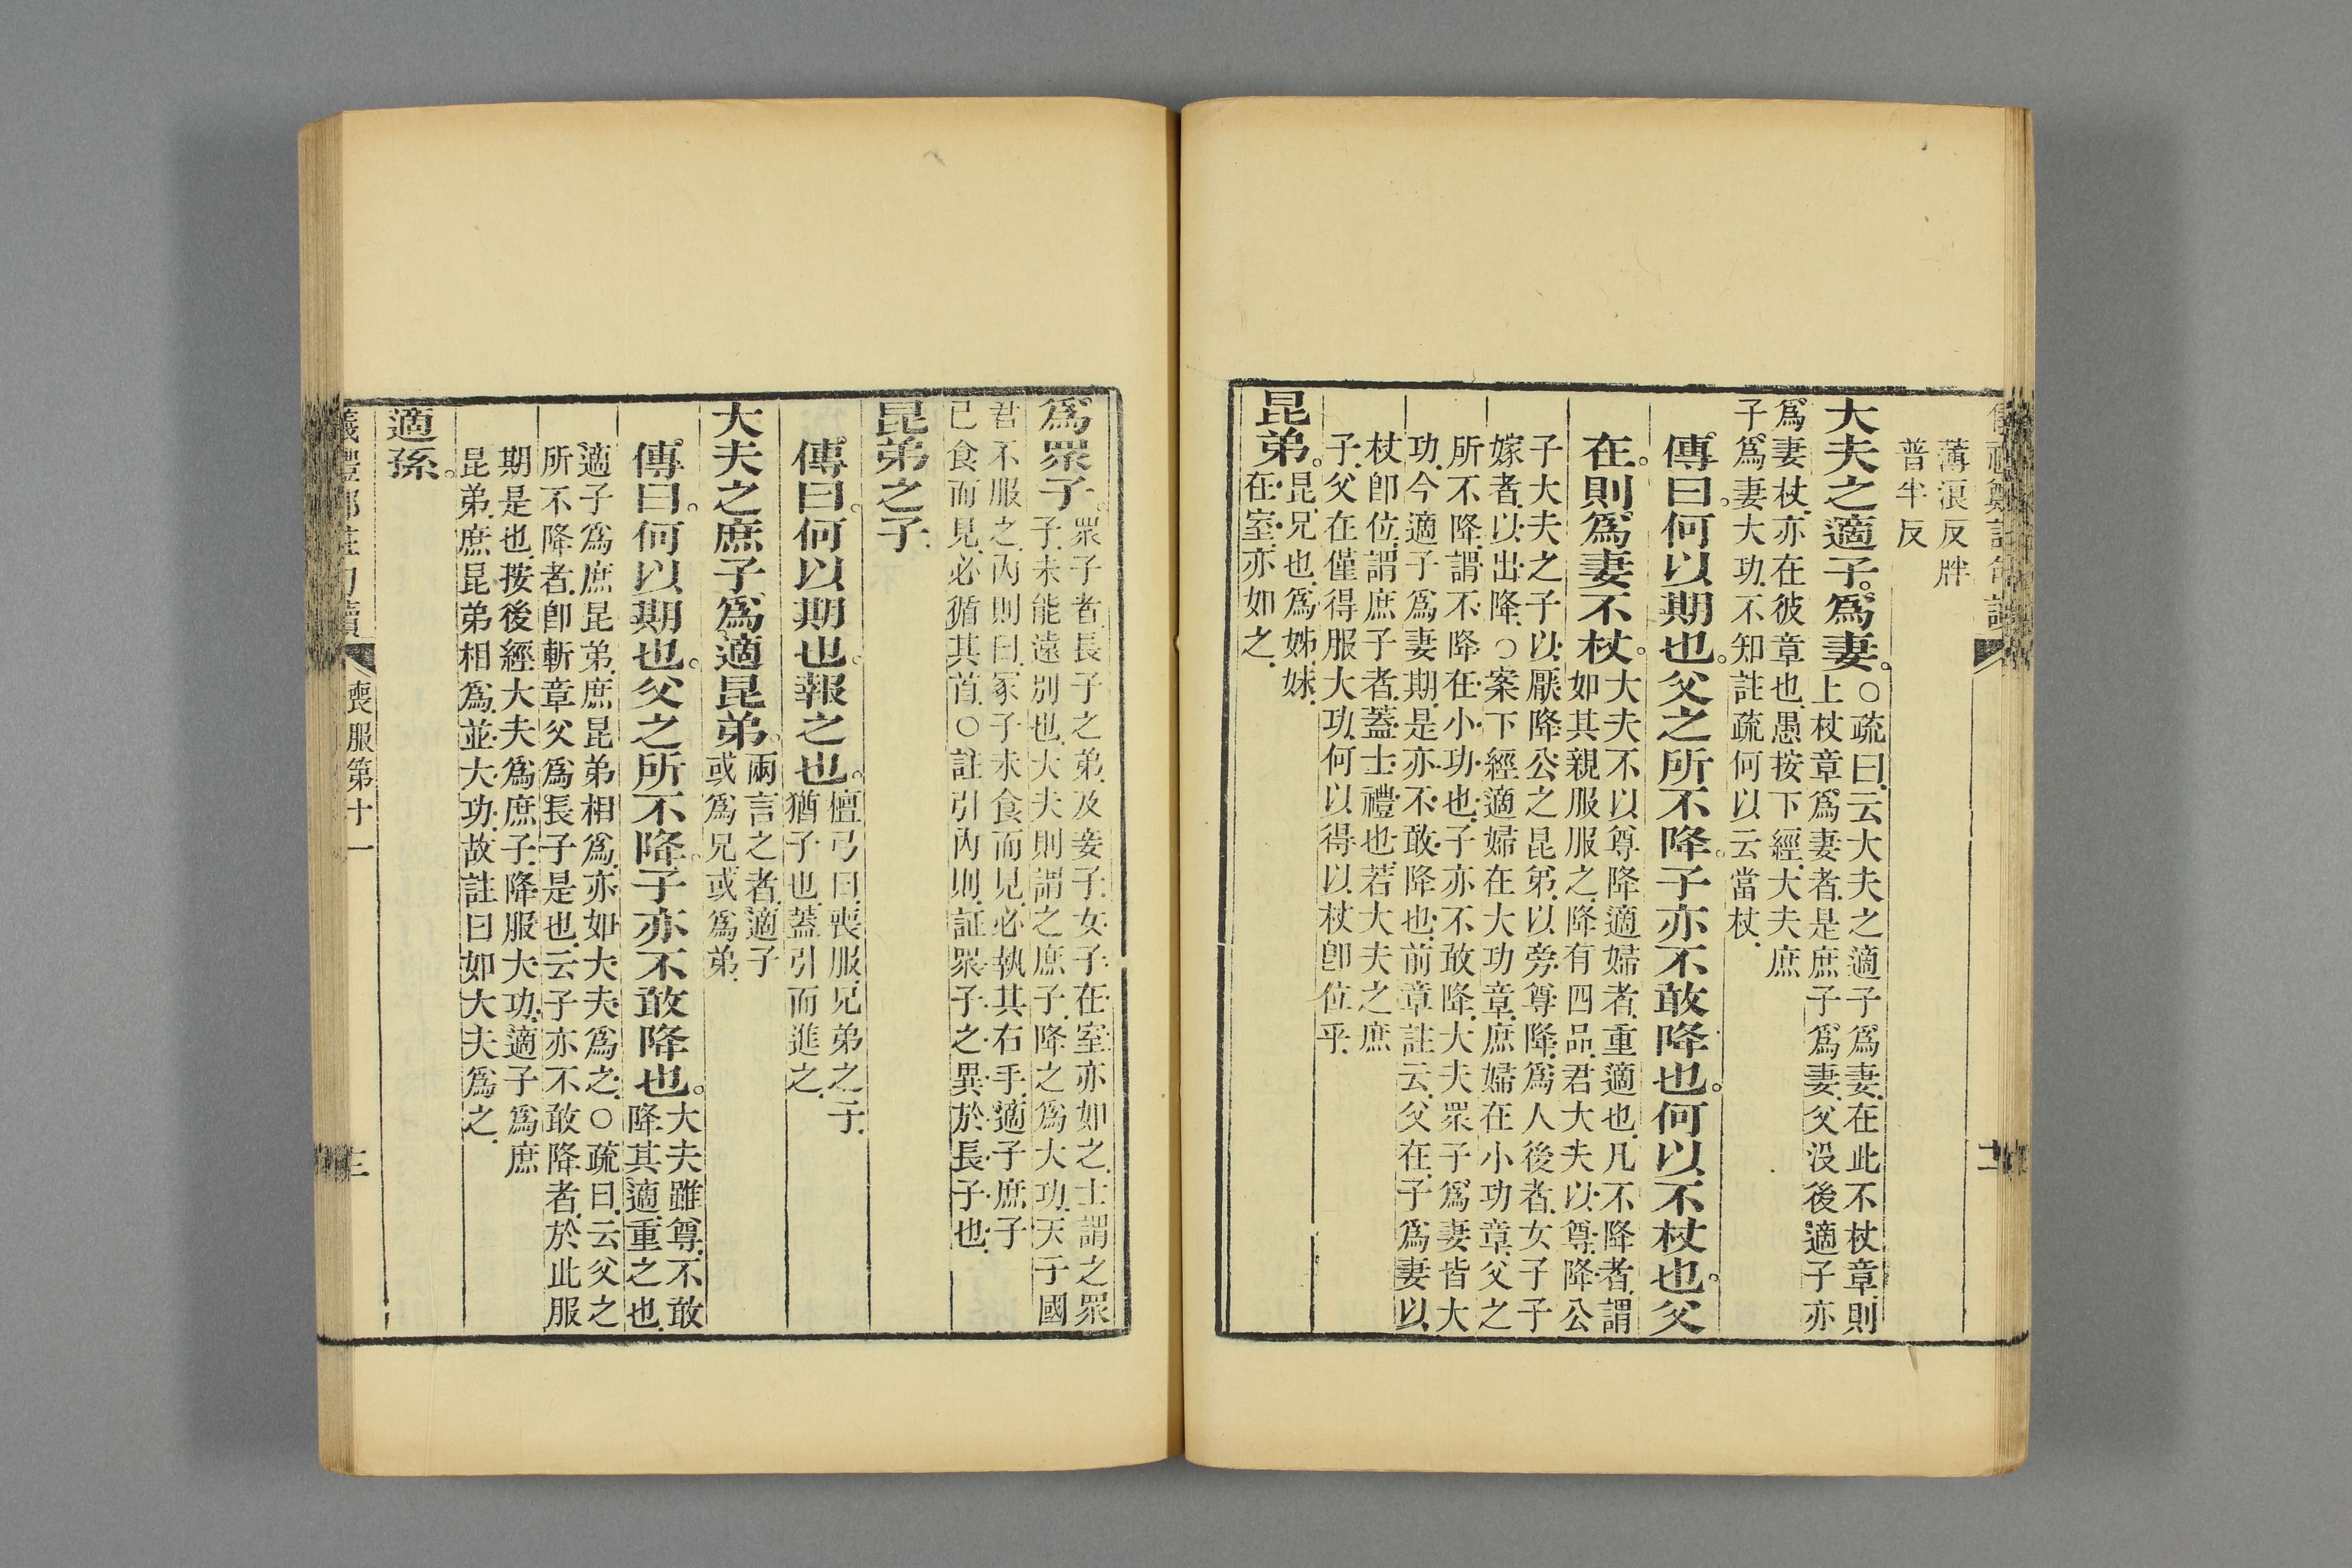 薄浪反胖
普半反
大夫之適子爲妻。○疏曰云大夫之適子爲妻在此不杖章則
上杖章爲妻者是庶子爲妻父没後適子亦
爲妻杖亦在彼章也愚按下經大夫庶
子爲妻大功不知註疏何以云當杖
傳曰。何以期也。父之所不降。子亦不敢降也。何以不杖也。父
在。則爲妻不杖。大夫不以尊降適婦者重適也凡不降者謂
如其親服服之降有四品君大夫以尊降公
子大夫之子以厭降公之昆弟以旁尊降爲人後者女子子
嫁者以出降○案下經適婦在大功章庶婦在小功章父之
所不降謂不降在小功也子亦不敢降大夫眾子爲妻皆大
功今適子爲妻期是亦不敢降也前章註云父在子爲妻以
杖卽位謂庶子者蓋士禮也若大夫之庶
子父在僅得服大功何以得以杖卽位乎
昆弟。昆兄也爲姊妹
在室亦如之
爲眾子。眾子者長子之弟及妾子女子在室亦如之士謂之眾
子未能遠别也大夫則謂之庶子降之爲大功天子國
君不服之内則曰冢子未食而見必執其右手適子庶子
已食而見必循其首○註引内則証眾子之異於長子也
昆弟之子
傳曰。何以期也。報之也。檀弓曰喪服兄弟之子
猶子也蓋引而進之
大夫之庶子爲適昆弟。兩言之者適子
或爲兄或爲弟
傳曰。何以期也。父之所不降。子亦不敢降也。大夫雖尊不敢
降其適重之也
適子爲庶昆弟庶昆弟相爲亦如大夫爲之○疏曰云父之
所不降者卽斬章父爲長子是也云子亦不敢降者於此服
期是也按後經大夫爲庶子降服大功適子爲庶
昆弟庶昆弟相爲並大功故註曰如大夫爲之
適孫。
喪服第十一